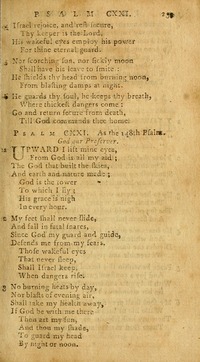 PSALM CXXI. 239
4 Israel rejoice, and rest secure,
Thy keeper is the Lord,
His wakeful eyes employ his power
For thine eternal guard.
5 Nor scorching sun, nor sickly moon
Shall have his leave to smite:
He shields thy head from burning noon,
From blasting damps at night.
6 He guards thy soul, he keeps thy breath,
Where thickest dangers come:
Go and return secure from death,
Till God commands thee home.
PSALM CXXI. As the 148th Psalm.
God our Preserver.
UPWARD I lift mine eyes,
From God is all my aid;
The God that built the skies,
And earth and nature made;
God is the tower
To which I fly;
His grace is nigh
In every hour.
2 My feet shall never slide,
And fall in fatal snares,
Since God my guard and guide,
Defends me from my fears.
Those wakeful eyes
That never sleep,
Shall Israel keep,
When dangers rise.
3 No burning heats by day,
Nor blasts of evening air,
Shall take my health away,
If God be with me there
Thou art my sun,
And thou my shade,
To guard my head
By night or noon.